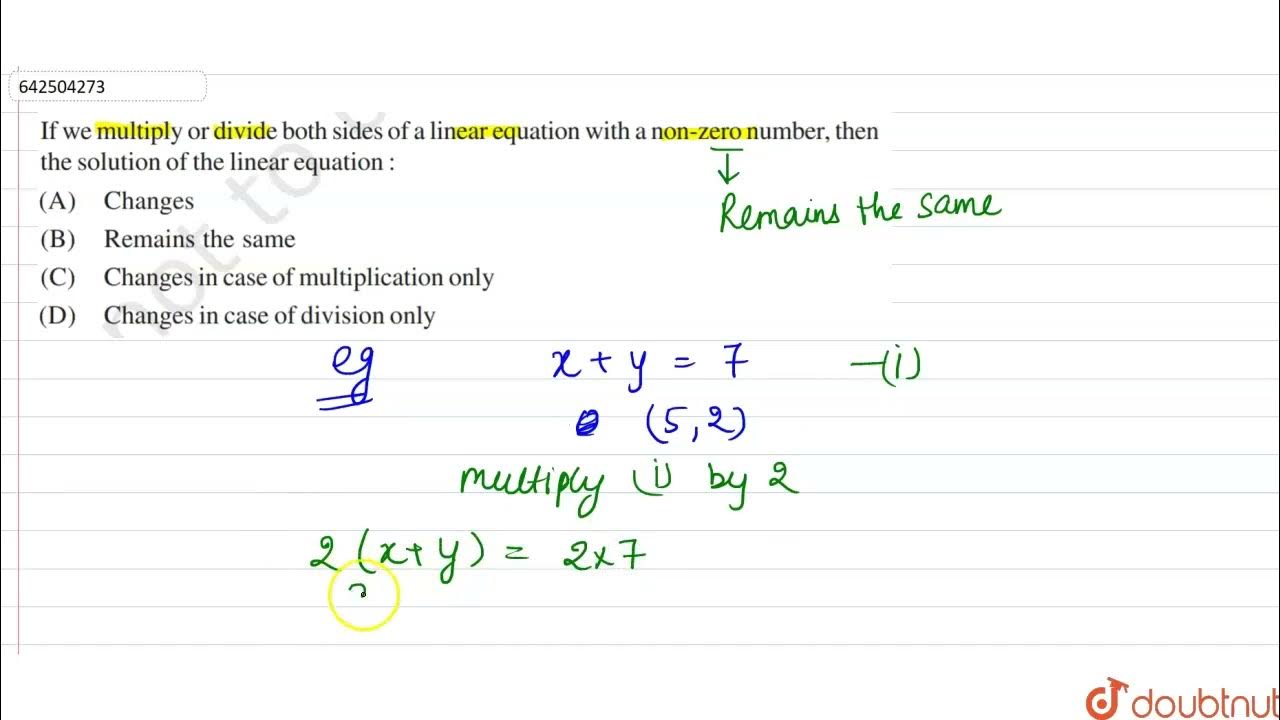 642504273
If we multiply or divide both sides of a linear equation with a non-zero number, then
the solution of the linear equation :
(A) Changes
Remains the same
(B) Remains the same
(C) Changes in case of multiplication only
(D) Changes in case of division only
not to
eg x + y = 7 —(i)
(5, 2)
multiply (i) by 2
2 (x + y) = 2 x 7
2
doubtnut